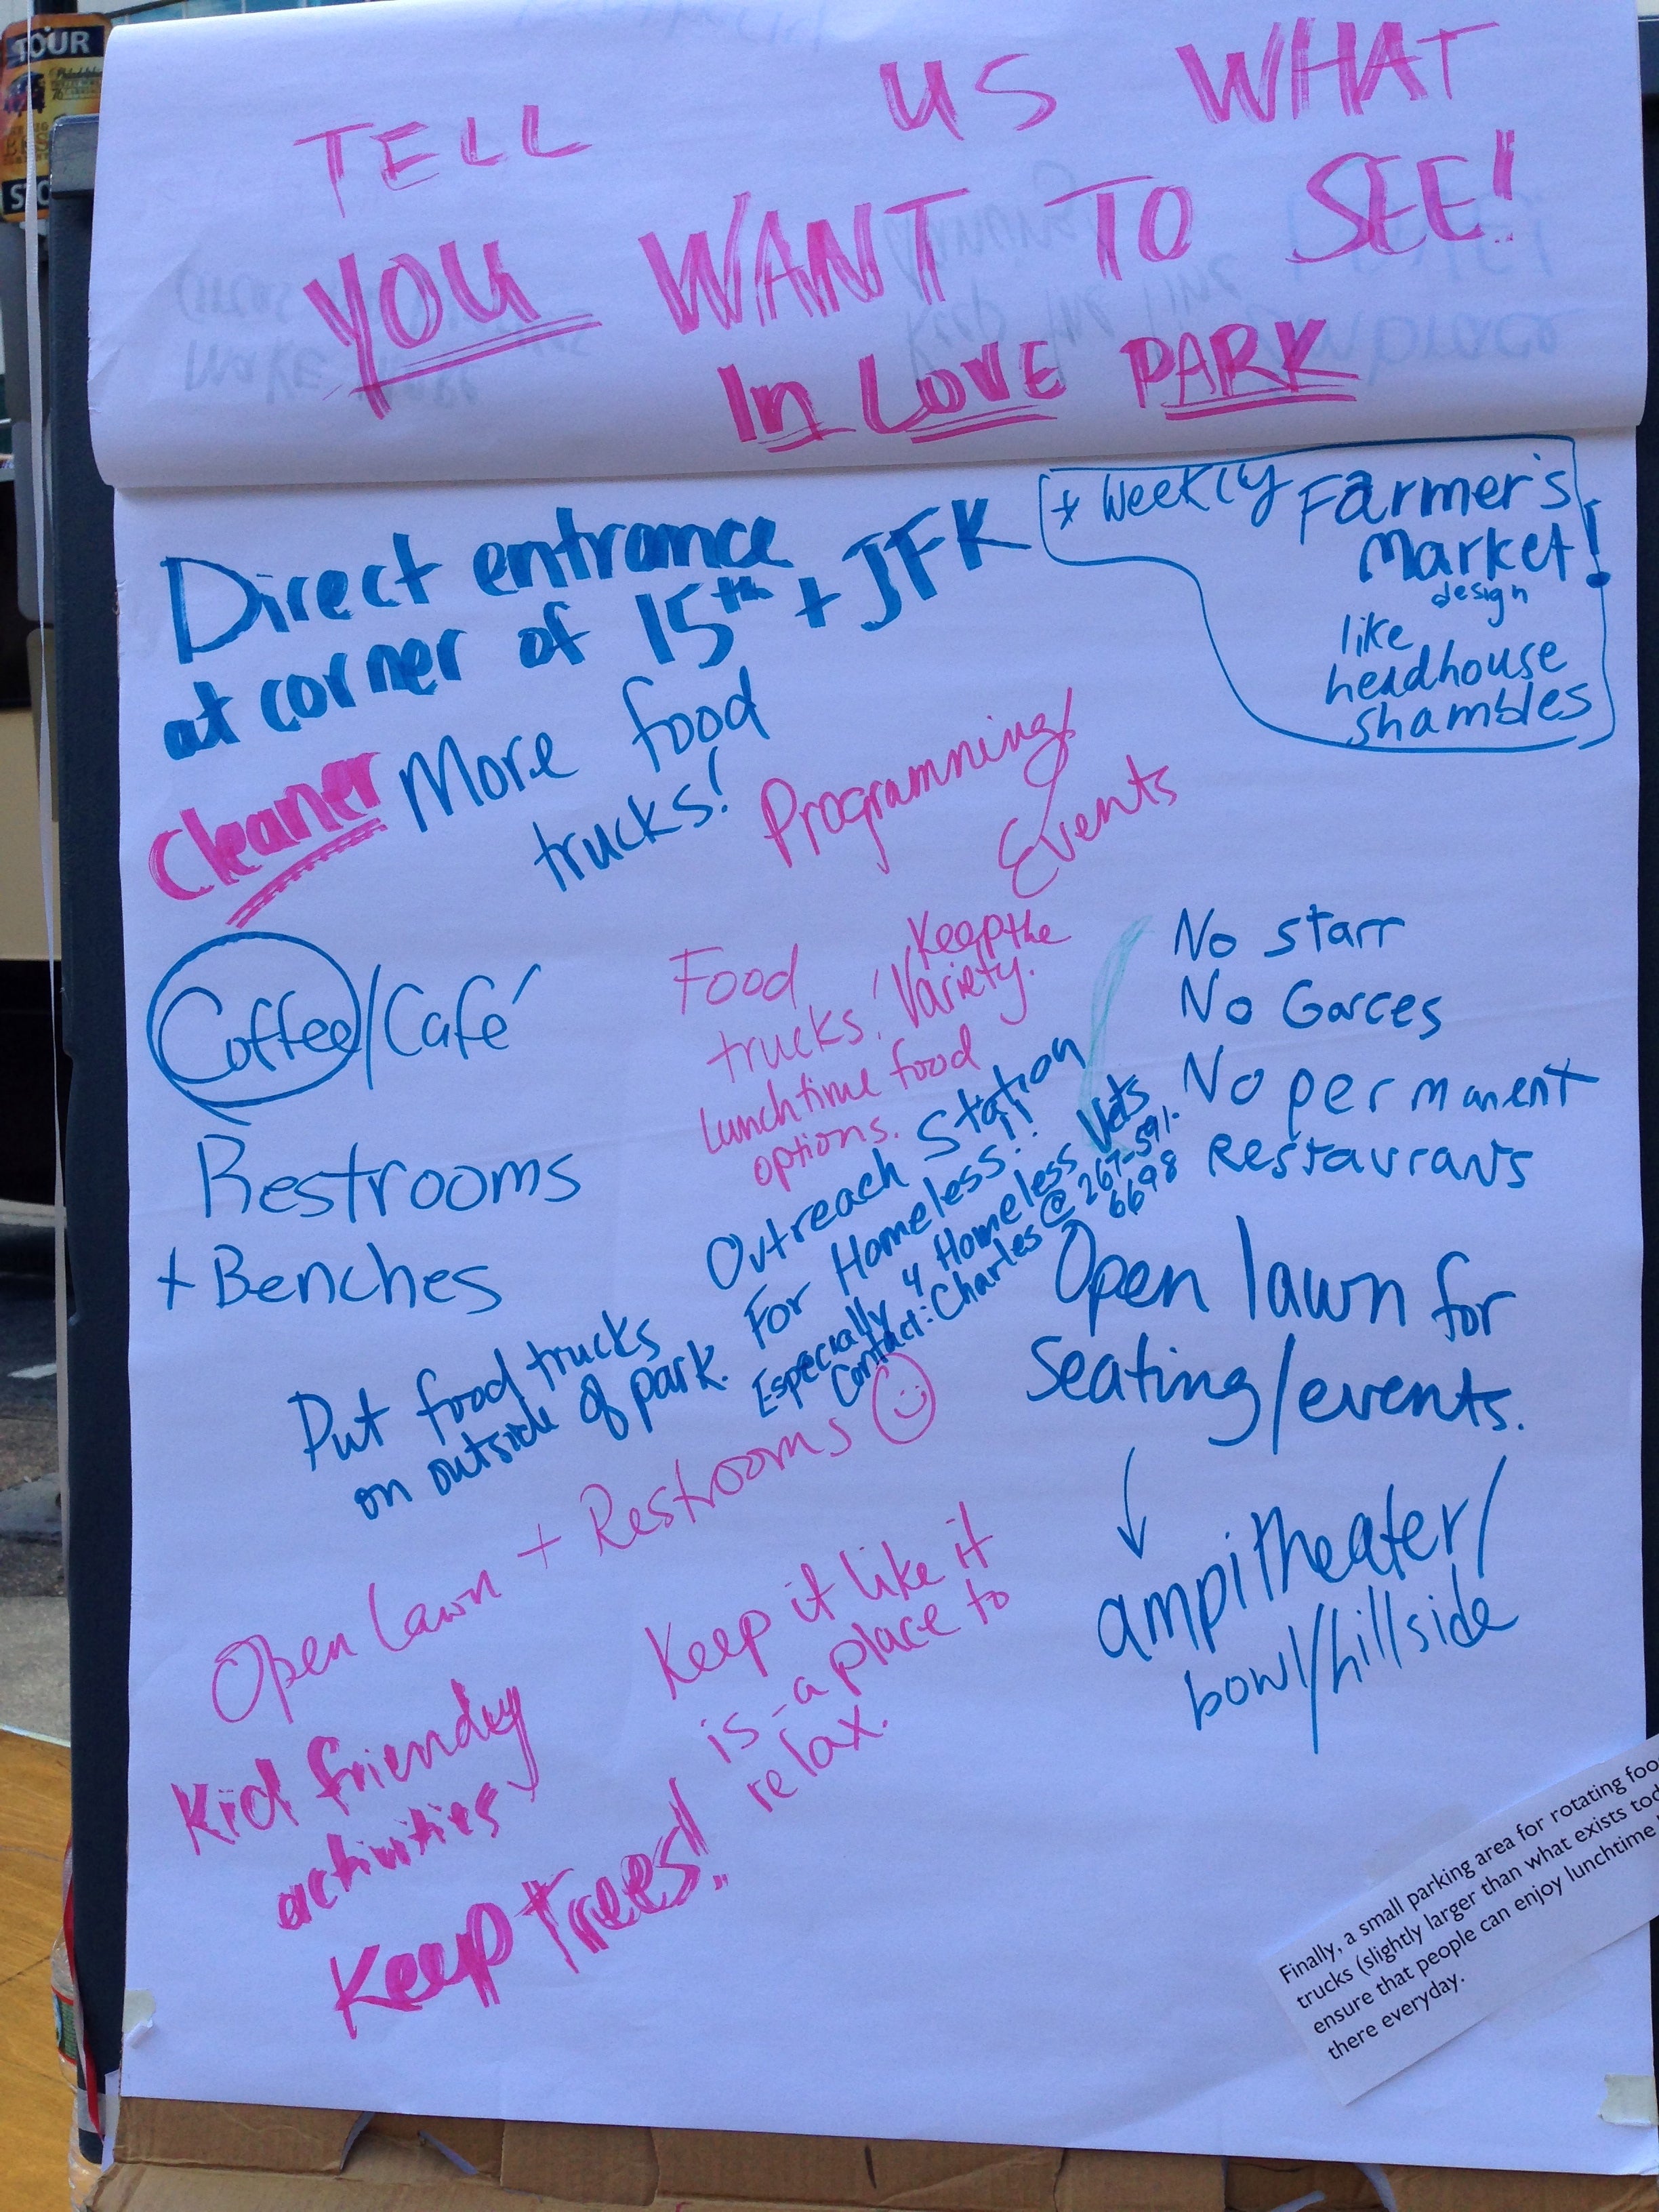 TOUR
TELL US WHAT
YOU WANT TO SEE!
In LOVE PARK
Direct entrance
at corner of 15th + JFK
* Weekly Farmer's
Market!
design
like
headhouse
shambles
Cleaner
More food
trucks!
Programming/
Events
Coffee/Café
Food
trucks!
Keep the
Variety.
lunchtime food
options.
No starr
No Garces
No permanent
Restaurants
Restrooms
+ Benches
Outreach Station
For Homeless!!
Especially 4 Homeless Vets
Contact: Charles @ 267-591-
6698
Put food trucks
on outside of park.
Open lawn for
Seating/events.
ampitheater/
bowl/hillside
Open Lawn + Restrooms
Keep it like it
is - a place to
relax.
Kid friendly
activities
Keep Trees!!
Finally, a small parking area for rotating foo
trucks (slightly larger than what exists tod
ensure that people can enjoy lunchtime
there everyday.